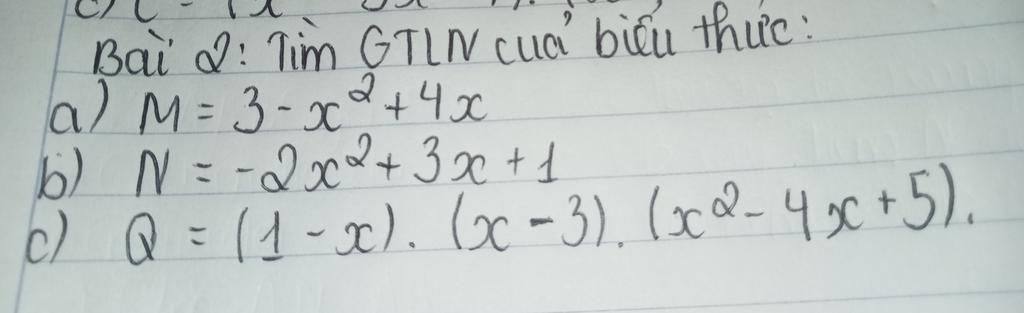 Bài 2: Tìm GTLN của biểu thức:
a) M = 3 - x² + 4x
b) N = -2x² + 3x + 1
c) Q = (1 - x). (x - 3). (x² - 4x + 5).